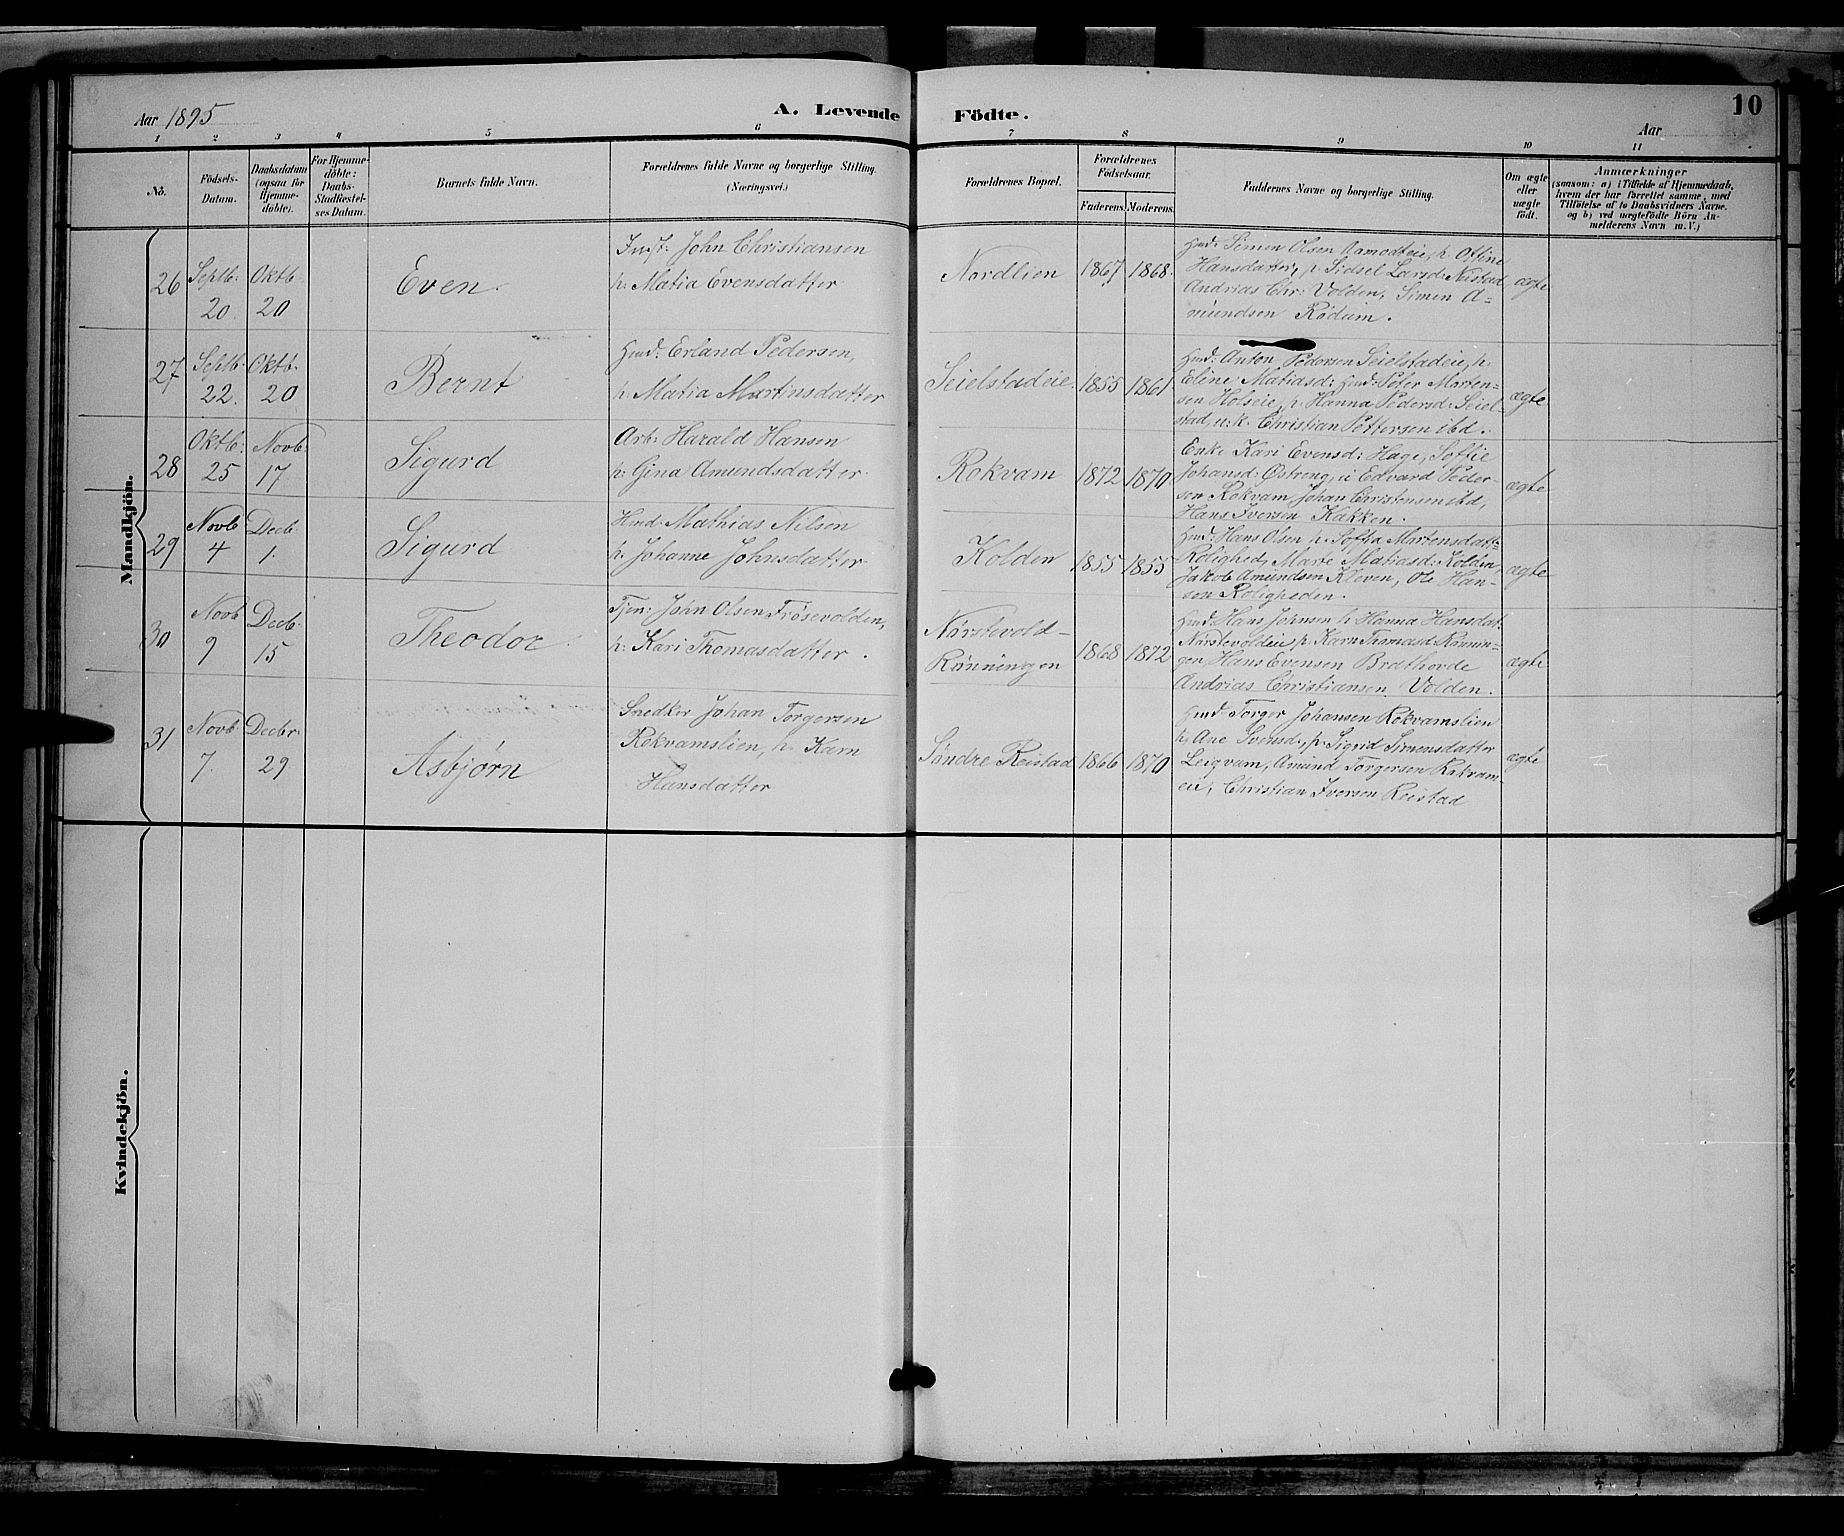 Aar 1895
A. Levende Födte.
10
Aar
1 2 3 4 5 6 7 8 9 10 11
No.
Födsels-
Datum.
Daabsdatum
(ogsaa for
Hjemme-
döbte).
For Hjemme-
döbte:
Daabs-
Stadfæstel-
ses Datum.
Barnets fulde Navn.
Forældrenes fulde Navne og borgerlige Stilling.
(Næringsvei.)
Forældrenes Bopæl.
Forældrenes
Födselsaar.
Faderens. Moderens.
Faddernes Navne og borgerlige Stilling.
Om ægte
eller
uægte
födt.
Anmærkninger
(saasom: a) i Tilfælde af Hjemmedaab,
hvem der har forrettet samme, med
Tilföielse af to Daabsvidners Navne.
og b) ved uægtefödte Börn An-
melderens Navn m.V.)
Mandkjön.
26
Septb:
20.
Oktb.
20
Even.
Inst: John Christiansen
h: Matia Evensdatter
Nordlien
1867
1868.
Gmd: Simen Olsen Aamodteie, h. Oline
Hansdatter, p. Sidsel Larsd: Neistad
Andrias Chr: Volden, Simen A-
mundsen Rødum.
ægte
27
Septb.
22.
Oktb.
20
Bernt
Gmd: Erland Pedersen,
h: Matia Martinsdatter
Seielstadeie.
1855
1861
Gmd: Anton Pedersen Seielstadeie, h.
Eline Matiasd: Gmd: Peter Morten-
sen Holseie, p. Hanna Pedersd: Seiel-
stad, u: k. Christian Pettersen ibd.
ægte
28
Oktb:
25
Novb.
17
Sigurd
Arb: Harald Hansen
h: Gina Amundsdatter
Rokvam
1872
1870
Enke Kari Evensd: Hage, Soffie
Johansd: Østreng, u: Edvard Peder-
sen Rokvam, Johan Christensen ibd,
Hans Iversen Kakken.
ægte
29
Novb
4
Decb.
1.
Sigurd
Hmd: Mathias Nilsen
h. Johanne Johnsdatter
Kolden
1855
1855
Gmd: Hans Olsen h. Sofia Mortensdatt:
Rolighed, Marte Matiasd: Kolden,
Jakob Amundsen Kleven, Ole Han-
sen Roligheden.
ægte
30
Novb
9
Decb.
15
Theodor.
Tjen: John Olsen Frøsevolden,
h: Kari Thomasdatter.
Nørstevold-
Rønningen
1868
1872
Gmd: Hans Johnsen h: Hanna Hansdat.
Nørstevoldeie, p. Karn Thomasd: Rønnin-
gen, Hans Evensen Brathorde
Andrias Christiansen Volden.
ægte
31
Novb
7.
Decbr.
29
Asbjørn
Snedker Johan Torgersen
Rokvamslien, h. Karn
Hansdatter
Søndre Reistad
1866
1870
Gmd Torger Johansen Rokvamslien
h, Ane Svensd., p. Sigrid Simensdatter
Leiqvam, Amund Torgersen Rokvam-
eie, Christian Iversen Reistad
ægte
Kvindekjön.